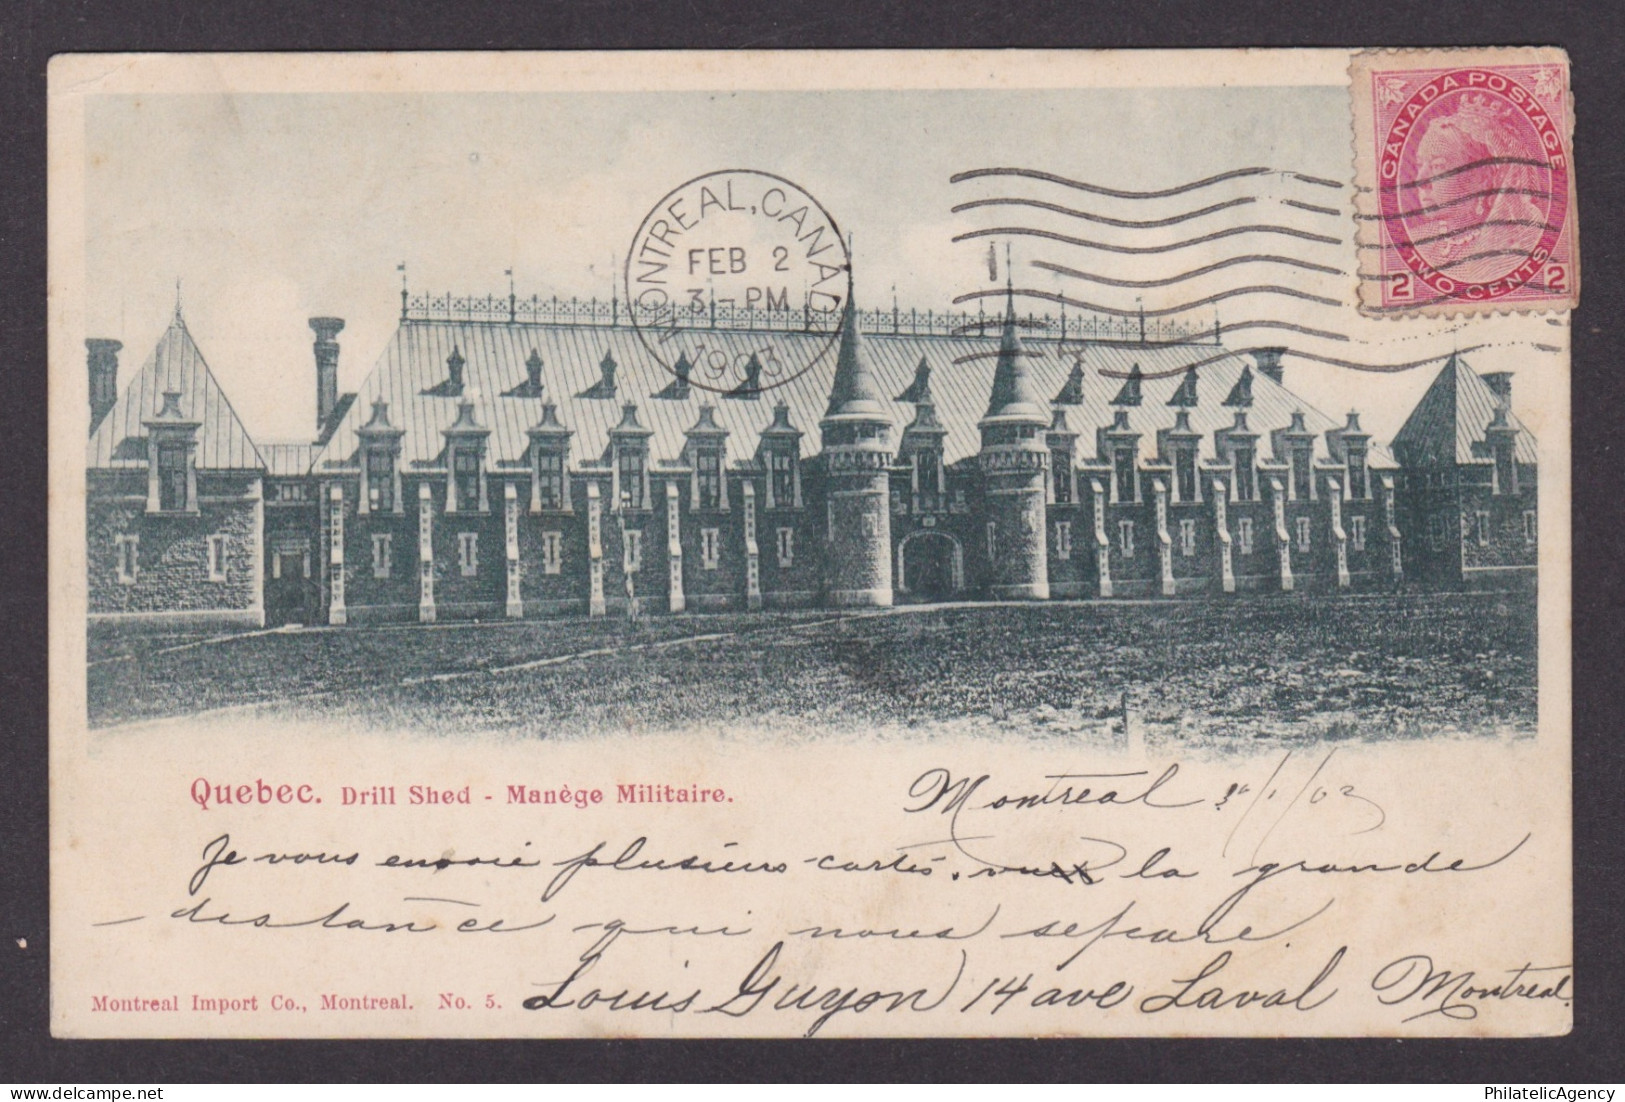 CANADA POSTAGE
2 TWO CENTS 2
MONTREAL, CANADA
FEB 2
3-PM
1903
1
Quebec. Drill Shed - Manège Militaire.
Montreal 30/1/03
Je vous envoie plusieurs cartes. vu la grande
distance qui nous sépare.
Louis Guyon 14 ave Laval Montreal.
Montreal Import Co., Montreal. No. 5.
PhilatelicAgency